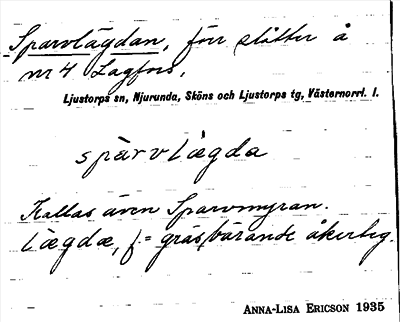 Sparvlägdan, förr slåtter å
nr 4 Lagfors.
Ljustorps sn, Njurunda, Sköns och Ljustorps tg, Västernorrl. l.
spàrvlæ̀gda
Kallas även Sparvmyran.
læ̀gdæ, f = gräsbärande åkerteg.
ANNA-LISA ERICSON 1935